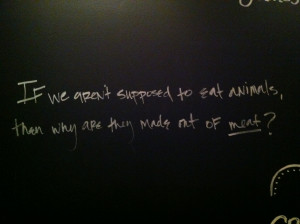 If we aren't supposed to eat animals,
then why are they made out of meat?